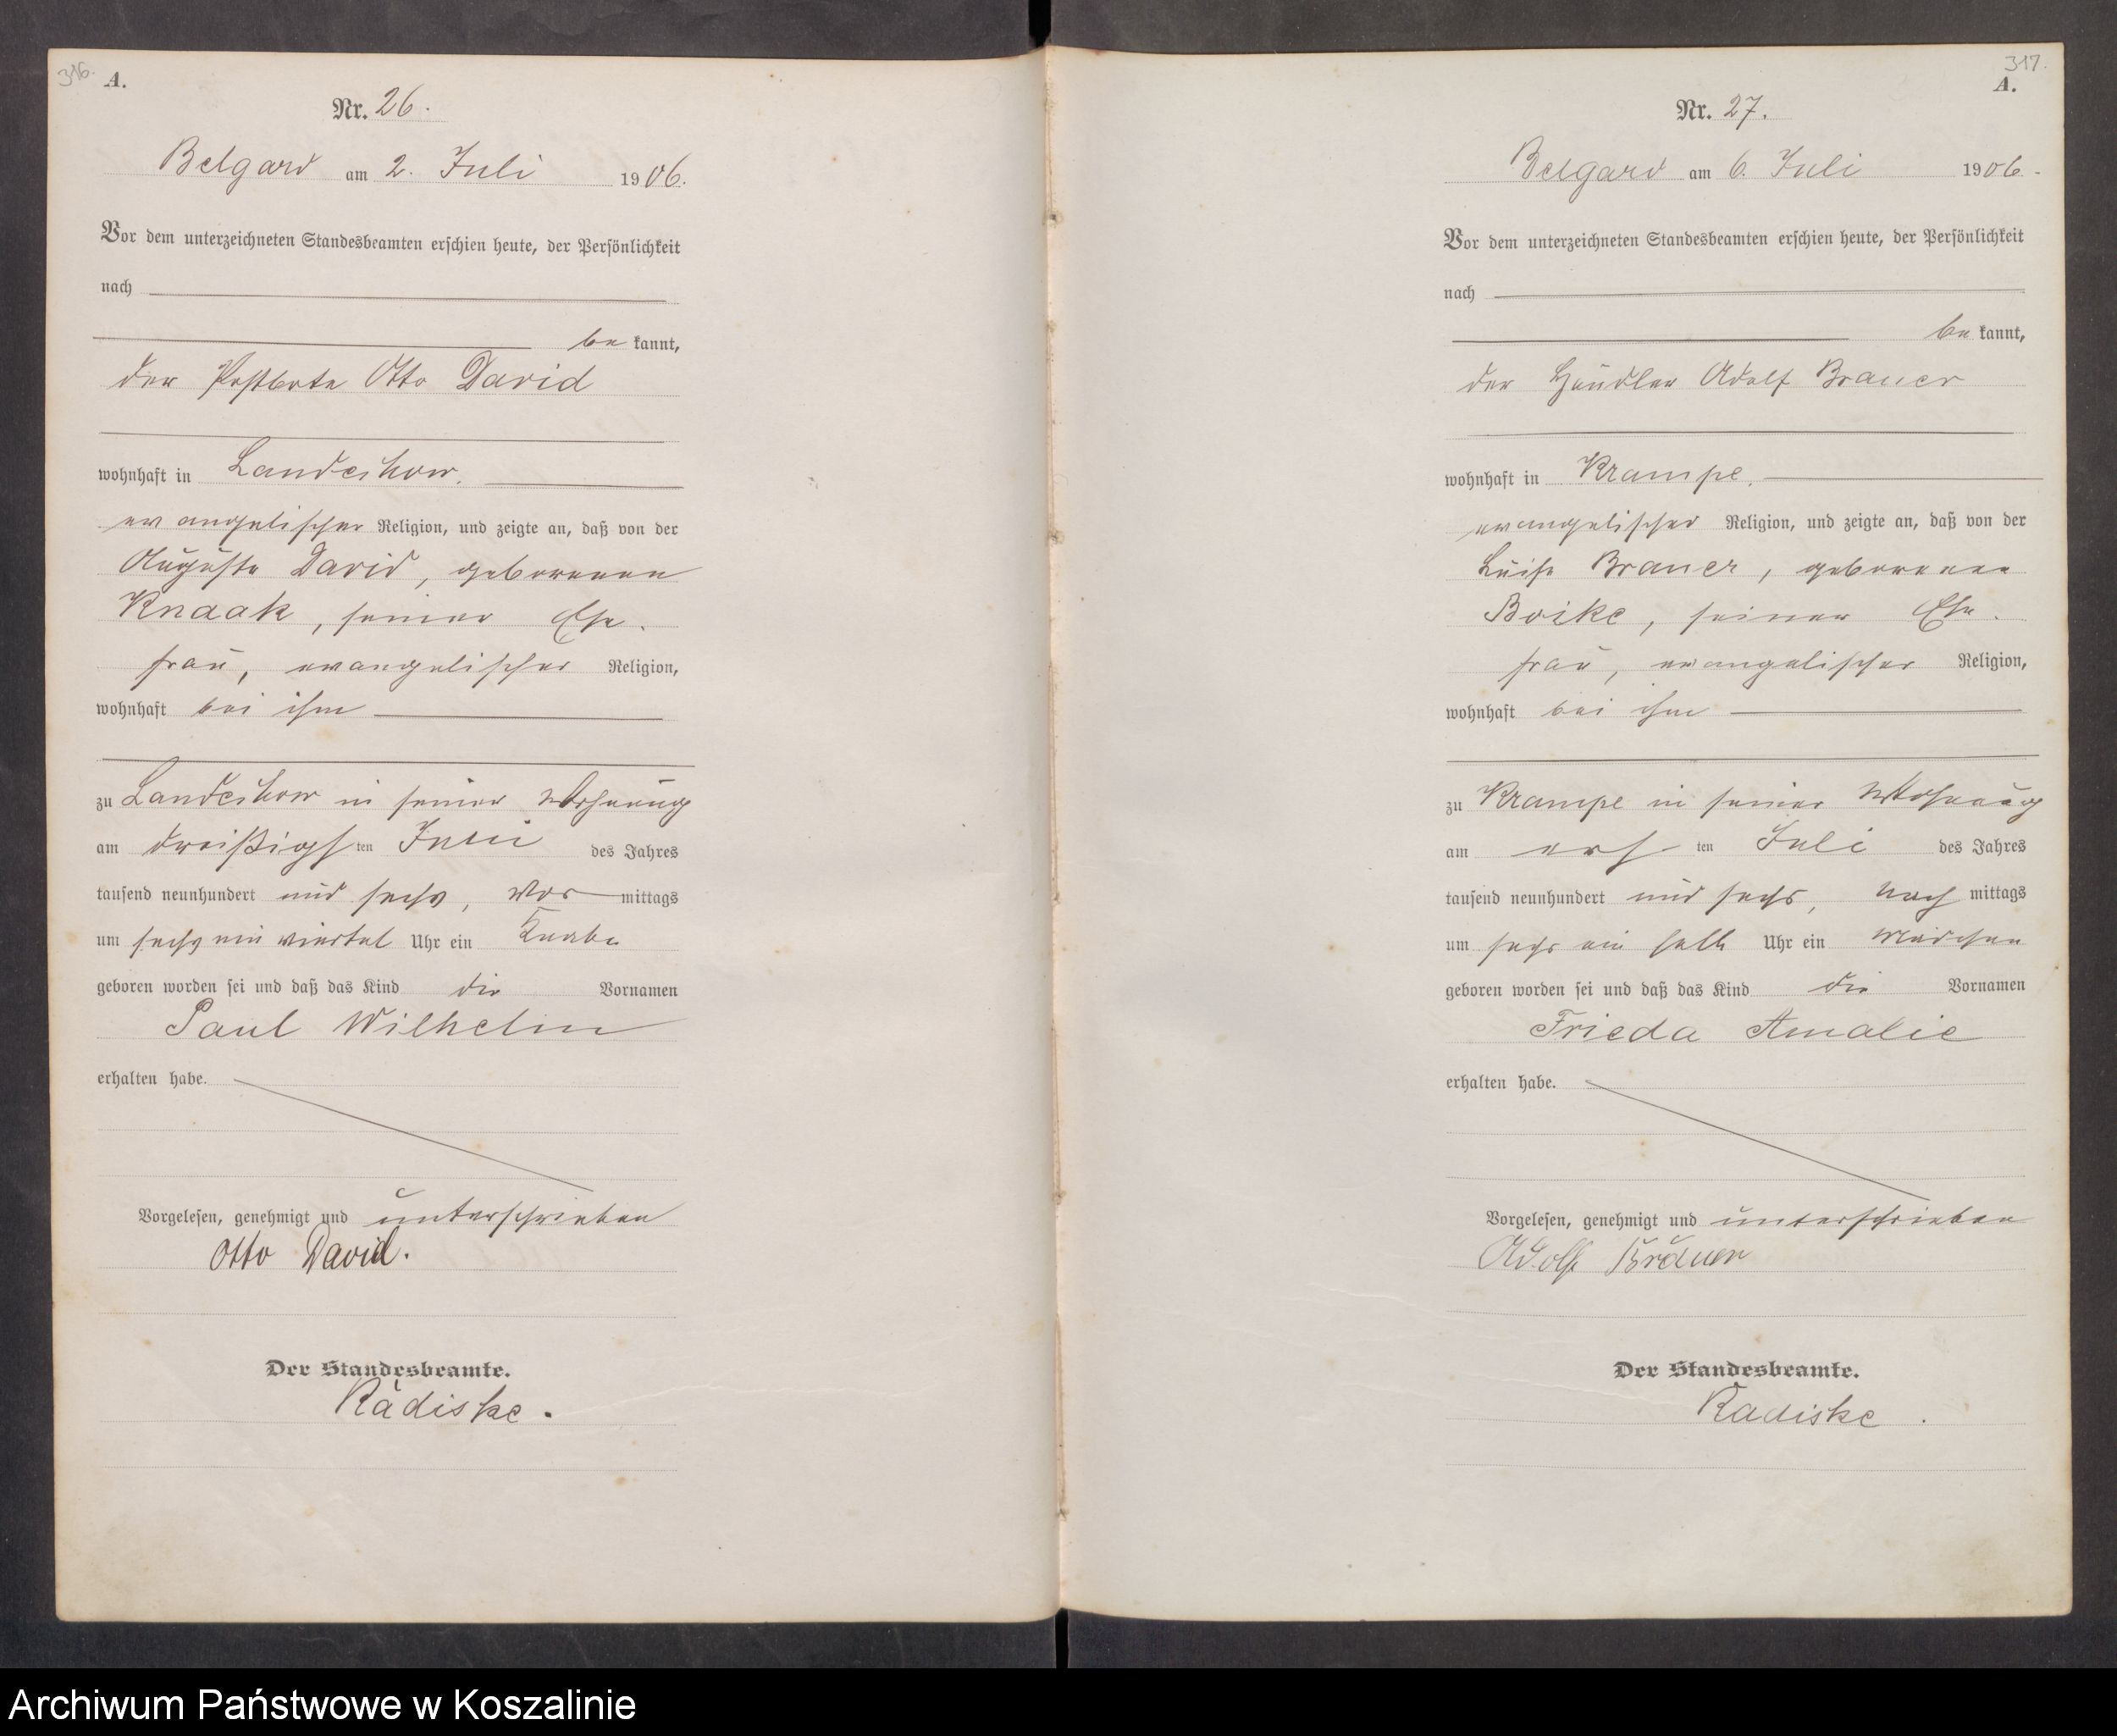 316.
A.
Nr. 26.
Belgard am 2. Juli 1906.
Vor dem unterzeichneten Standesbeamten erschien heute, der Persönlichkeit
nach
be kannt,
der Postbote Otto David
wohnhaft in Landechow.
evangelischer Religion, und zeigte an, daß von der
Auguste David, geborenen
Knaak, seiner Ehe-
frau, evangelischer Religion,
wohnhaft bei ihm
zu Landechow in seiner Wohnung
am dreißigsten Juni des Jahres
tausend neunhundert und sechs, Vormittags
um sechs ein viertel Uhr ein Knabe
geboren worden sei und daß das Kind die Vornamen
Paul Wilhelm
erhalten habe.
Vorgelesen, genehmigt und unterschrieben
Otto David.
Der Standesbeamte.
Radiske.
317.
A.
Nr. 27.
Belgard am 6. Juli 1906.
Vor dem unterzeichneten Standesbeamten erschien heute, der Persönlichkeit
nach
be kannt,
der Händler Adolf Brauer
wohnhaft in Krampe.
evangelischer Religion, und zeigte an, daß von der
Luise Brauer, geborenen
Boike, seiner Ehe-
frau, evangelischer Religion,
wohnhaft bei ihm
zu Krampe in seiner Wohnung
am ersten Juli des Jahres
tausend neunhundert und sechs, Nachmittags
um sechs ein halb Uhr ein Mädchen
geboren worden sei und daß das Kind die Vornamen
Frieda Amalie
erhalten habe.
Vorgelesen, genehmigt und unterschrieben
Adolf Brauer
Der Standesbeamte.
Radiske.
Archiwum Państwowe w Koszalinie